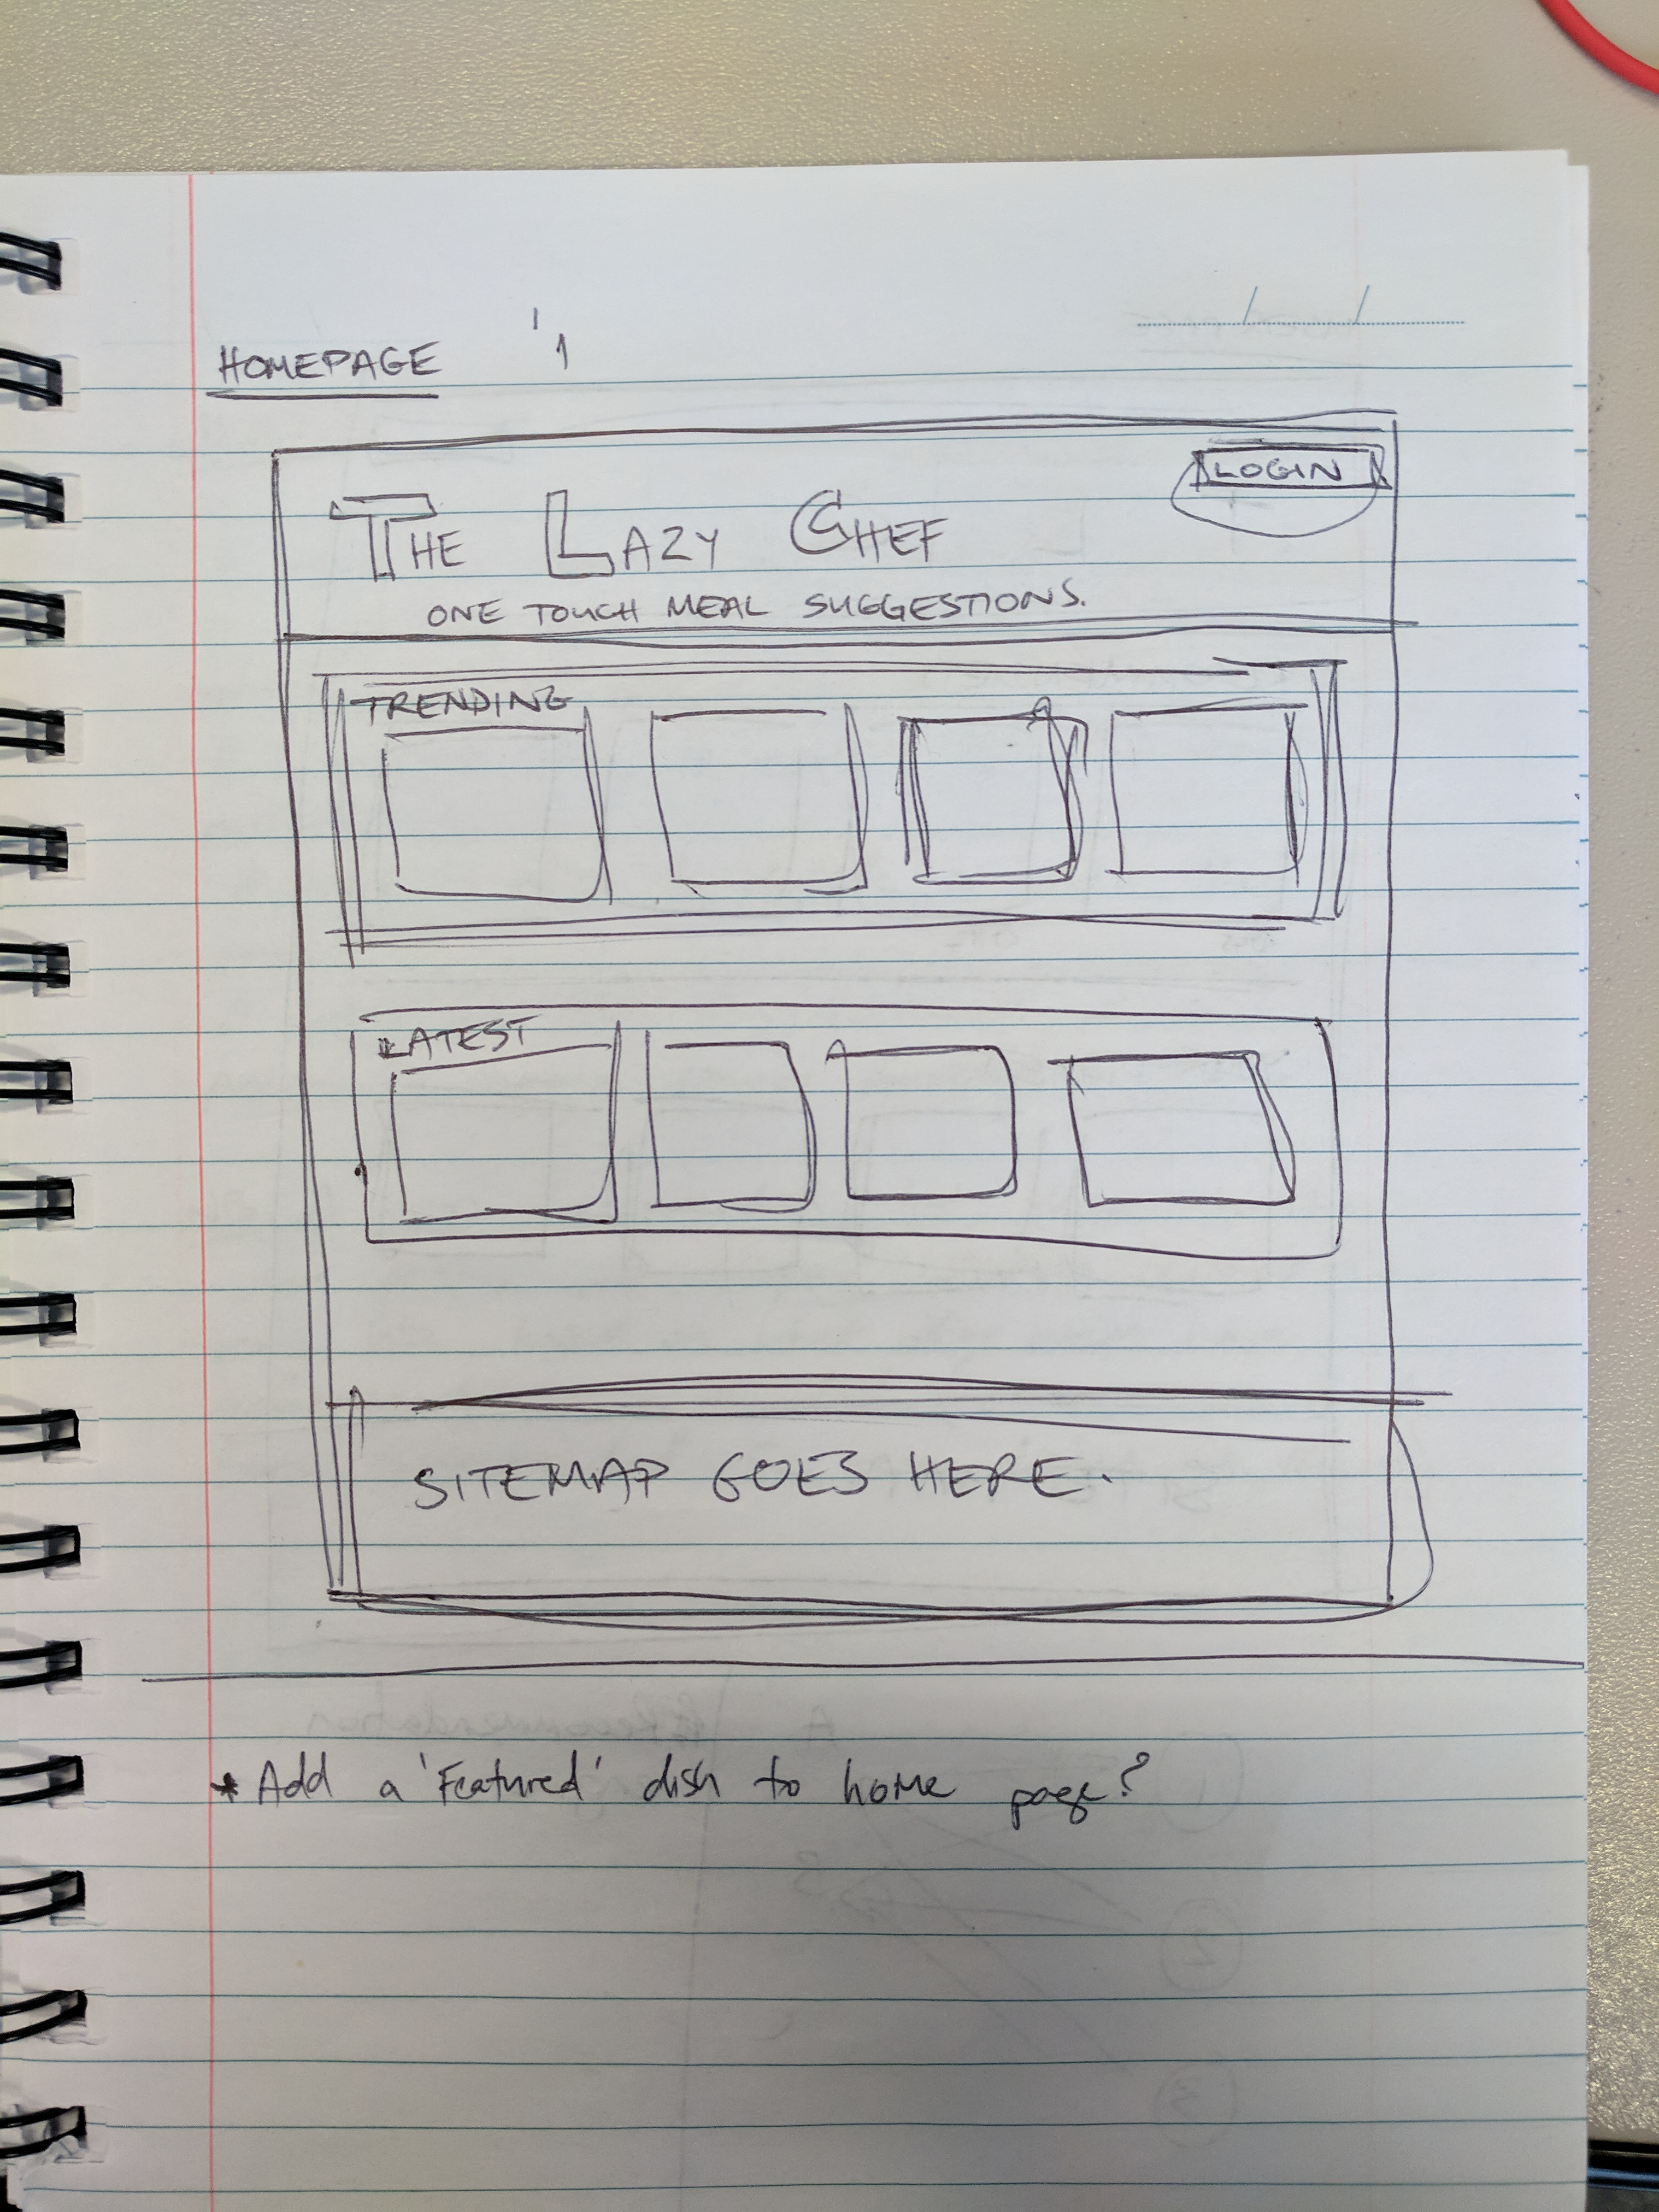 HOMEPAGE
LOGIN
THE LAZY CHEF
ONE TOUCH MEAL SUGGESTIONS.
TRENDING
LATEST
SITEMAP GOES HERE.
* Add a 'Featured' dish to home page?